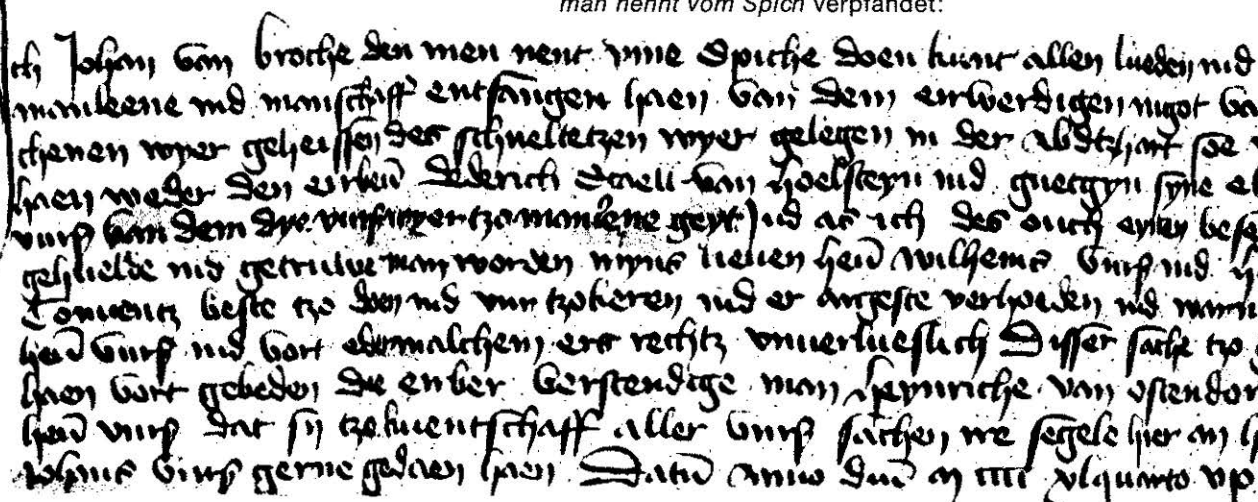 man nennt vom Spich verpfändet:
ch Johan van broche den men nent vme Spiche doen kunt allen lueden ind
manleene ind manschaff entfangen haen van dem eirwerdigen
chenen wyer geheissen des schueltetzen wyer gelegen in der soe
haen weder den Dederich Staell van hoelsteyn ind guetgyn syne
vurß van dem dyc vurß wyer tzo manlene geyt Ind as ich des ouch eynen
gehuelde ind getruwe man worden myns lieuen Wilhems vurß ind
Conuentz beste tzo doen ind vur tzokeren ind er argeste verhoeden ind
vurß ind vort edermalchem ers rechtz vnuerlueslich Disser sache tzo
haen vort gebeden die erber verstendige man heynriche van ostendor
vurß dat sij tzo kuentschaff aller vurß sachen segele hier an
Johans vurß gerne gedaen haen Datū Anno dnī M CCCC xlquarto